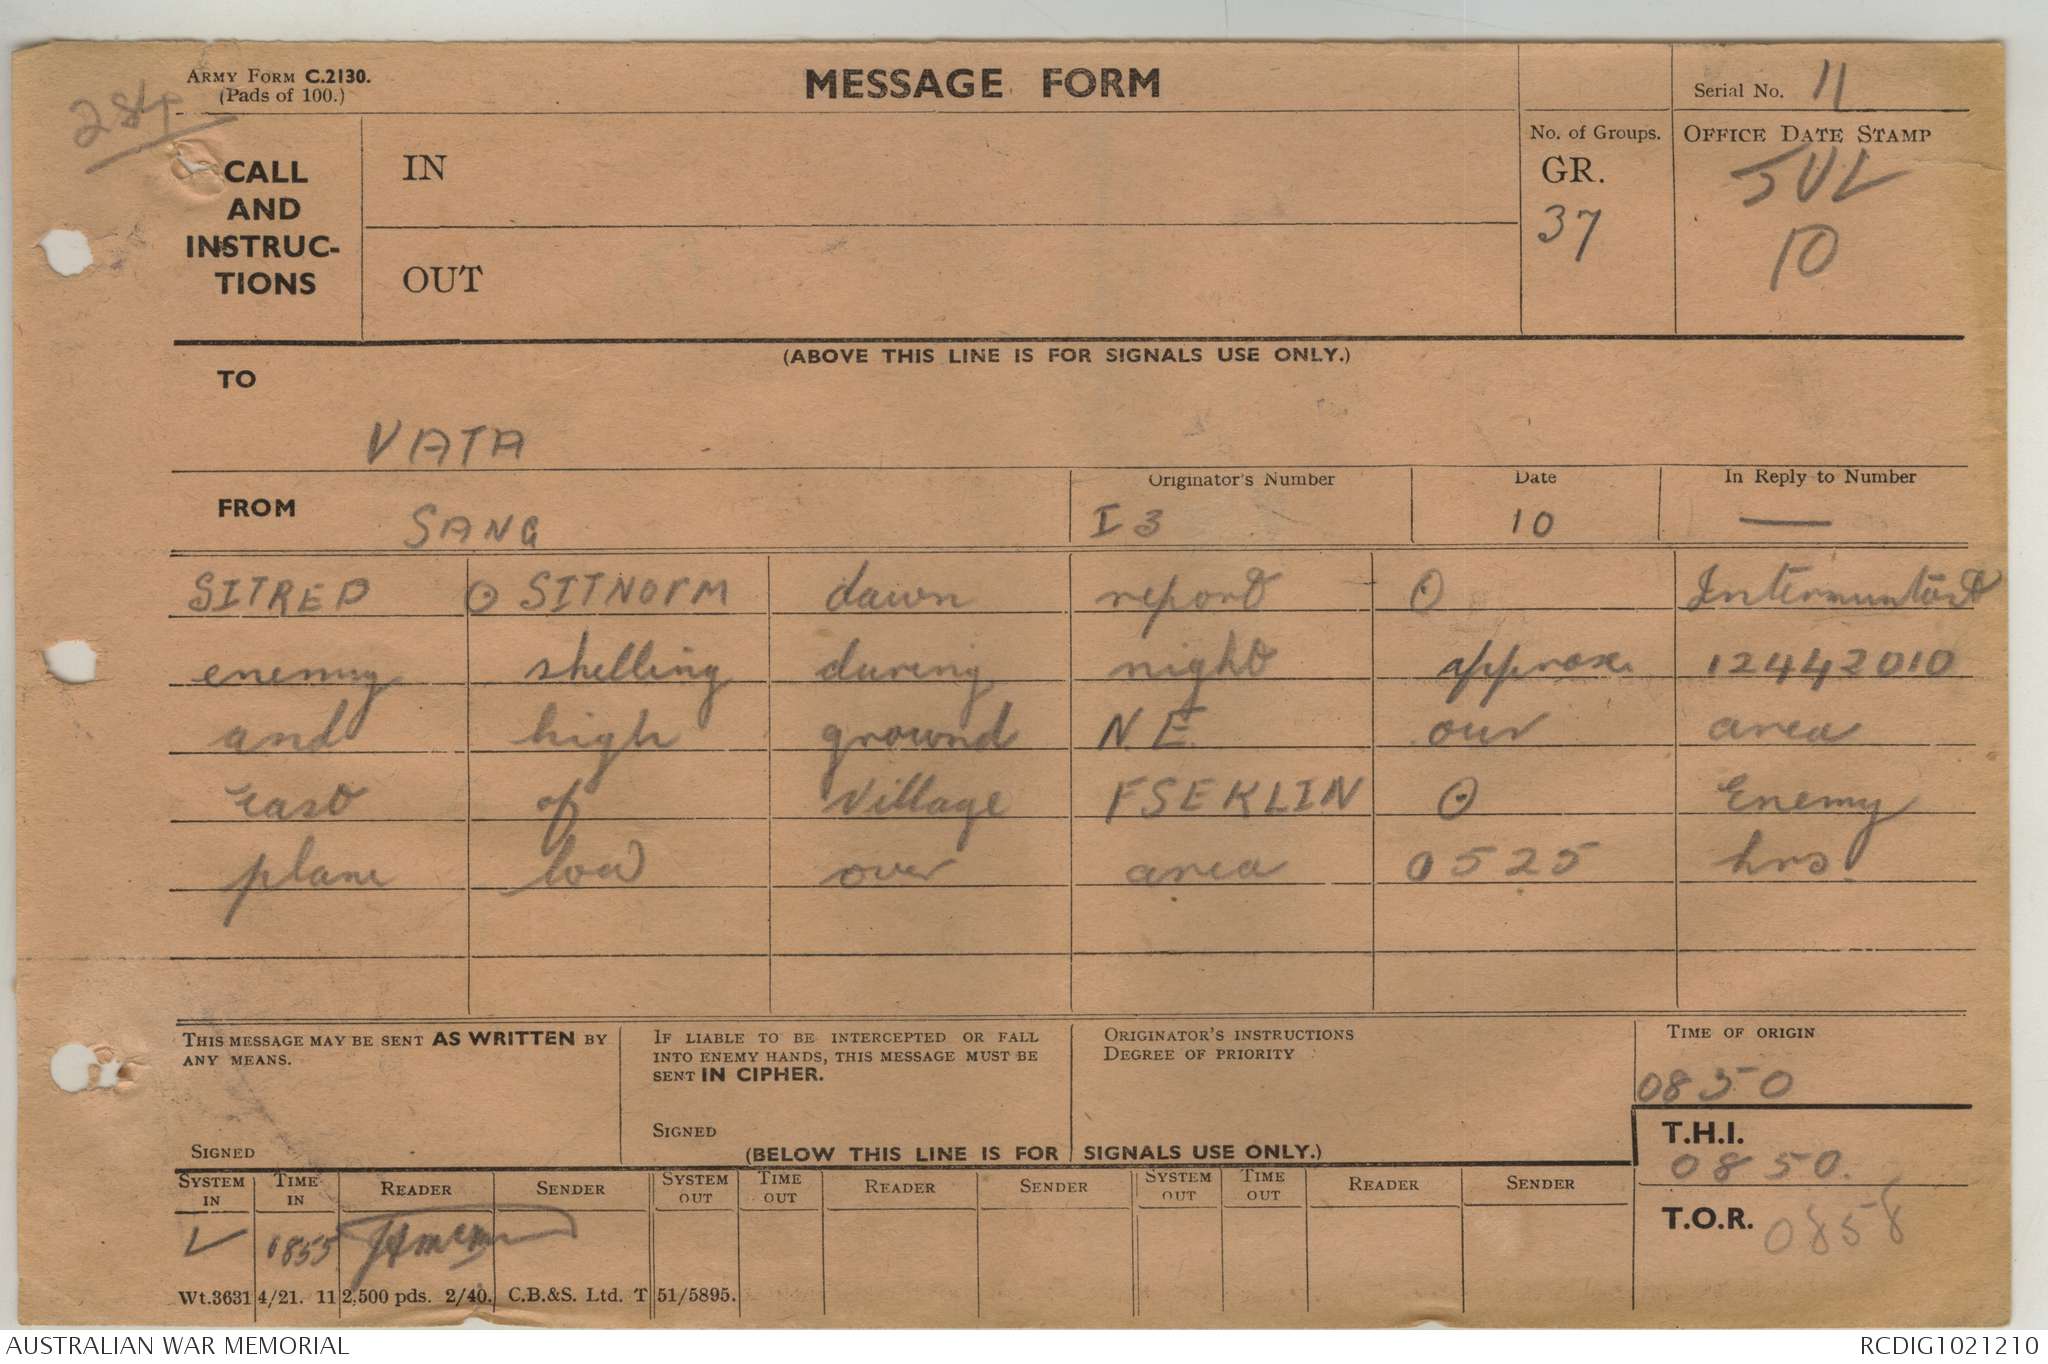 ARMY FORM C.2130.
(Pads of 100.)
MESSAGE FORM
Serial No. 11
CALL AND INSTRUC-TIONS
IN
OUT
No. of Groups.
GR.
37
OFFICE DATE STAMP
JUL
10
(ABOVE THIS LINE IS FOR SIGNALS USE ONLY.)
TO
VATA
FROM SANG
Originator's Number
I 3
Date
10
In Reply to Number
—
SITREP ⊙ SITNORM dawn report ⊙
enemy shelling during night approx. 12442010
and high ground N.E. our area
east of village FSEKLIN ⊙ Enemy
plane low over area 0525 hrs.
THIS MESSAGE MAY BE SENT AS WRITTEN BY
ANY MEANS.
SIGNED
IF LIABLE TO BE INTERCEPTED OR FALL
INTO ENEMY HANDS, THIS MESSAGE MUST BE
SENT IN CIPHER.
SIGNED
ORIGINATOR'S INSTRUCTIONS
DEGREE OF PRIORITY
TIME OF ORIGIN
0850
(BELOW THIS LINE IS FOR SIGNALS USE ONLY.)
T.H.I.
0850.
T.O.R. 0858
SYSTEM IN TIME IN READER SENDER SYSTEM OUT TIME OUT READER SENDER SYSTEM OUT TIME OUT READER SENDER
0855
Wt.3631 4/21. 11 2,500 pds. 2/40. C.B.&S. Ltd. T 51/5895.
AUSTRALIAN WAR MEMORIAL
RCDIG1021210